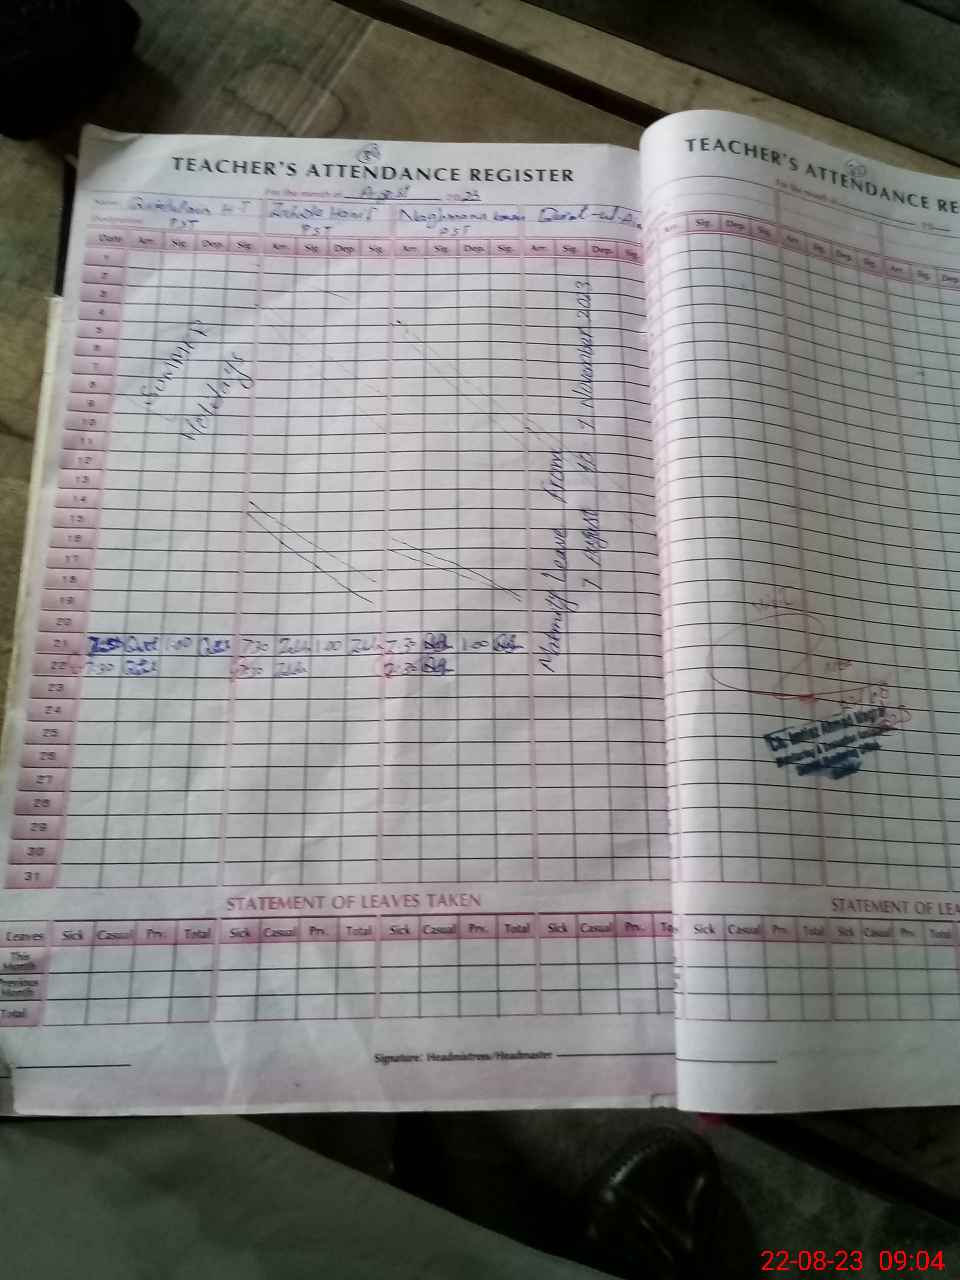 TEACHER'S ATTENDANCE REGISTER
For the month of August 2023
Name
H T
Zahida Hanif
Naghmana
Designation
PST
PST
PST
Date Arr. Sig. Dep. Sig. Arr. Sig. Dep. Sig. Arr. Sig. Dep. Sig. Arr. Sig. Dep. Sig.
1
2
3
4
5
6
7
8
9
10
11
12
13
14
15
16
17
18
19
20
21 1:00 7:30 1:00 7:30 1:00
22 7:30 7:30 7:30
23
24
25
26
27
28
29
30
31
Summer
Holidays
Maternity Leave from
7 August to 7 November 2023
STATEMENT OF LEAVES TAKEN
Leaves Sick Casual Prv. Total Sick Casual Prv. Total Sick Casual Prv. Total Sick Casual Prv. To
This Month
Previous Month
Total
Signature: Headmistress/Headmaster
TEACHER'S ATTENDANCE RE
For the month of
Arr. Sig. Dep. Sig. Arr. Sig. Dep. Sig. Arr. Sig. Dep.
STATEMENT OF LEA
Sick Casual Prv. Total Sick Casual Prv. Total
22-08-23 09:04